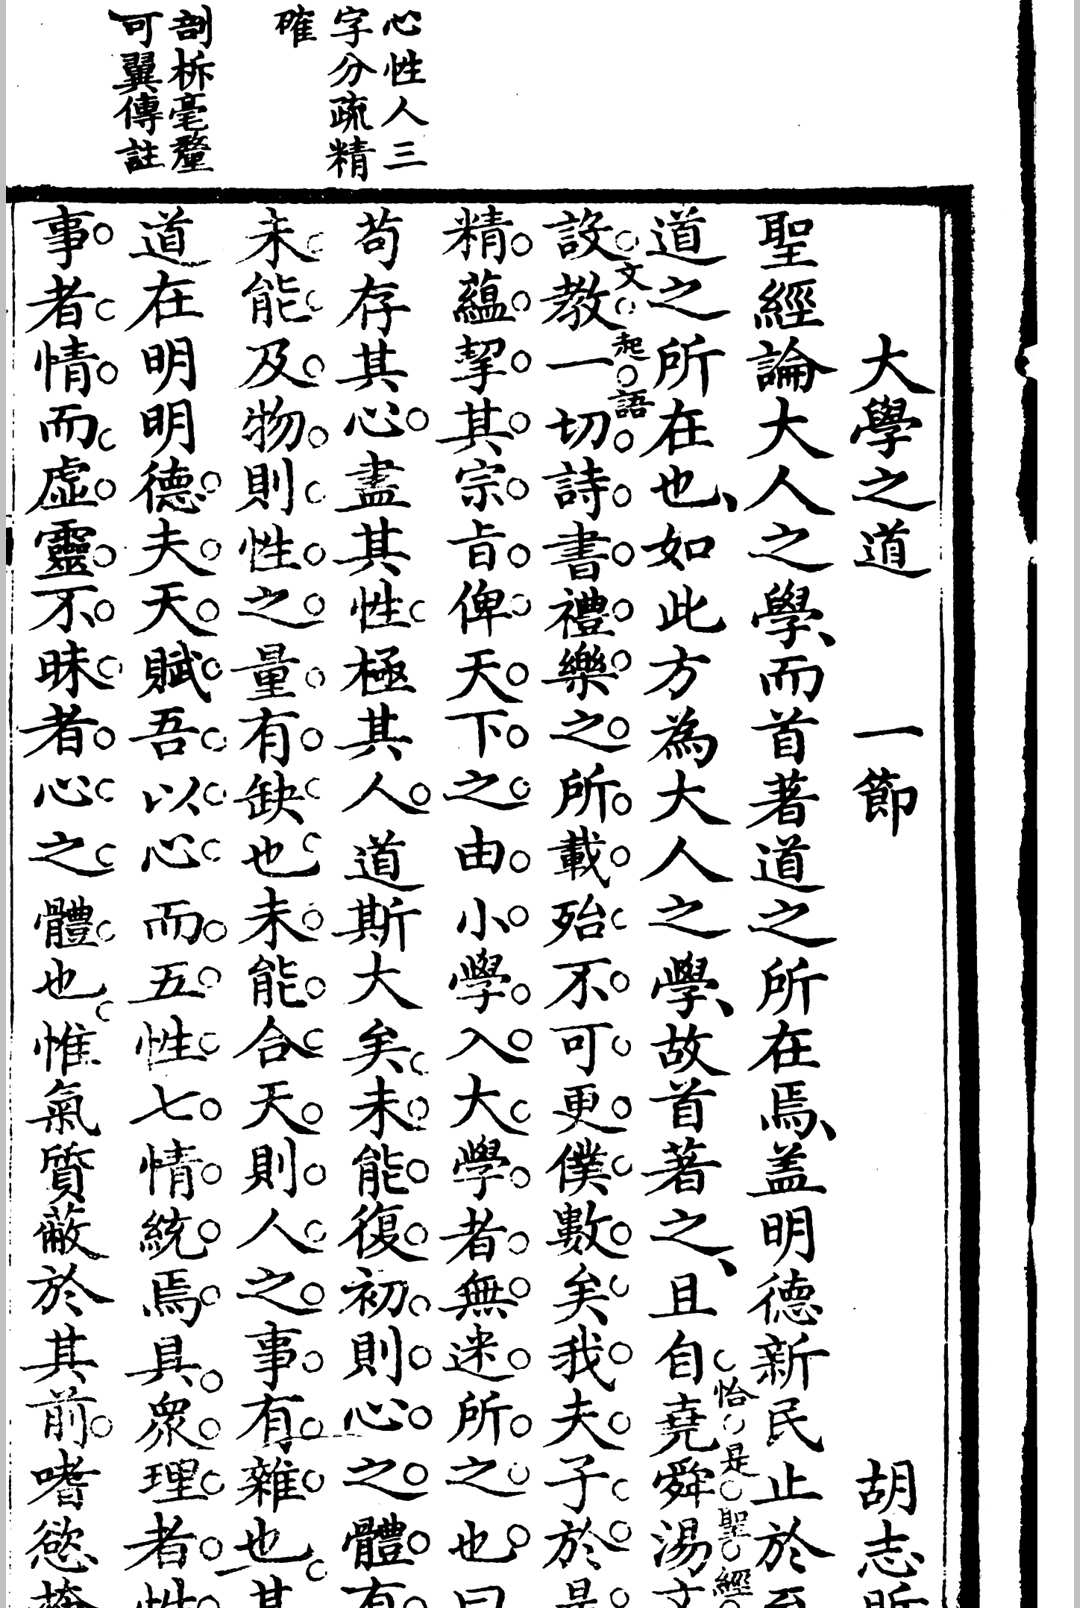 心性人三
字分疏精
確
剖柝毫釐
可翼傳註
大學之道 一節 胡志
聖經論大人之學、而首著道之所在焉、盖明德新民止於
道之所在也、如此方為大人之學、故首著之、且自堯舜湯文
恰是聖經
設教一切詩書禮樂之所載殆不可更僕數矣我夫子於是
文起語
精蘊挈其宗旨俾天下之由小學入大學者無迷所之也曰
苟存其心盡其性極其人道斯大矣未能復初則心之體有
未能及物則性之量有缺也未能合天則人之事有雜也其
道在明明德夫天賦吾以心而五性七情統焉具眾理者性
事者情而虛靈不昧者心之體也惟氣質蔽於其前嗜慾